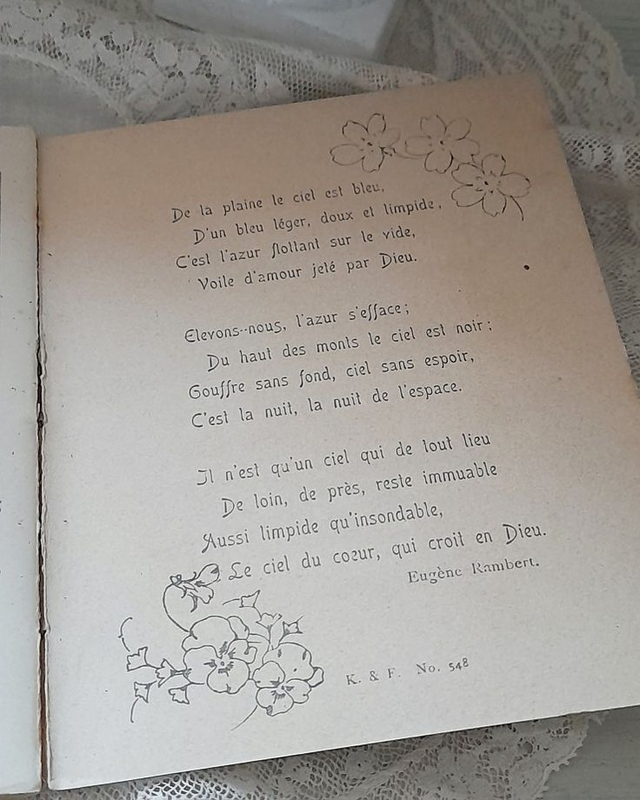 De la plaine le ciel est bleu,
D'un bleu léger, doux et limpide,
C'est l'azur flottant sur le vide,
Voile d'amour jeté par Dieu.
Elevons-nous, l'azur s'efface;
Du haut des monts le ciel est noir;
Gouffre sans fond, ciel sans espoir,
C'est la nuit, la nuit de l'espace.
Il n'est qu'un ciel qui de tout lieu
De loin, de près, reste immuable
Aussi limpide qu'insondable,
Le ciel du cœur, qui croit en Dieu.
Eugène Rambert.
K. & F. No. 548